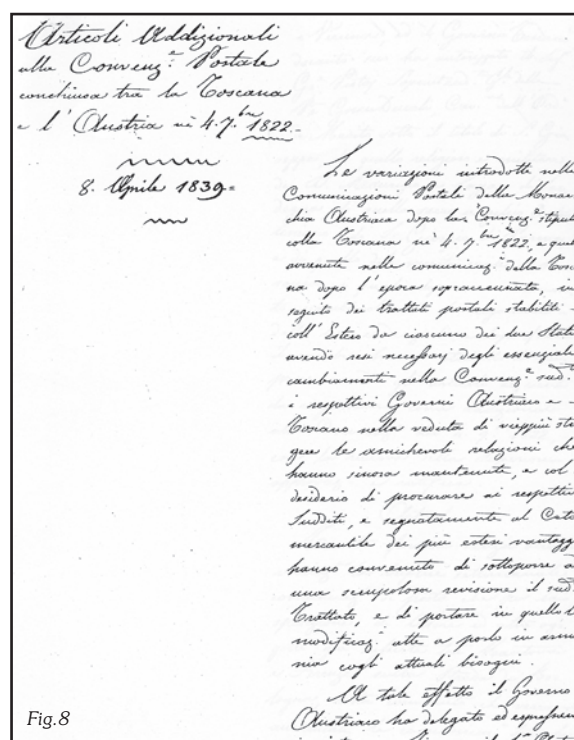 Articoli Addizionali
alla Convenz.e Postale
conchiusa tra la Toscana
e l'Austria nè 4. 7.bre 1822.-
8. Aprile 1839=
Le variazioni introdotte nelle
Comunicazioni Postali della Monar
chia Austriaca dopo la Convenz.e stipul
colla Toscana nè 4. 7.bre 1822, e quel
avvenute nelle comunicaz.i della Tosc
na dopo l'epoca sopraccennata, in
seguito dei trattati postali stabiliti -
coll'Estero da ciascuno dei due Stati
avendo resi necessarj degli essenziali
cambiamenti nella Convenz.e sud.a
i respettivi Governi Austriaco e -
Toscano nella veduta di vieppiù stri
gere le amichevoli relazioni che
hanno sinora mantenute, e col
desiderio di procurare ai respettiv
Sudditi, e segnatamente al Ceto
mercantile dei più estesi vantaggi
hanno convenuto di sottoporre a
una scrupolosa revisione il sud.o
Trattato, e di portare in quello l
modificaz.i atte a porlo in armo
nia cogli attuali bisogni.
A tale effetto il Governo
Austriaco ha delegato ed espressam
Fig.8